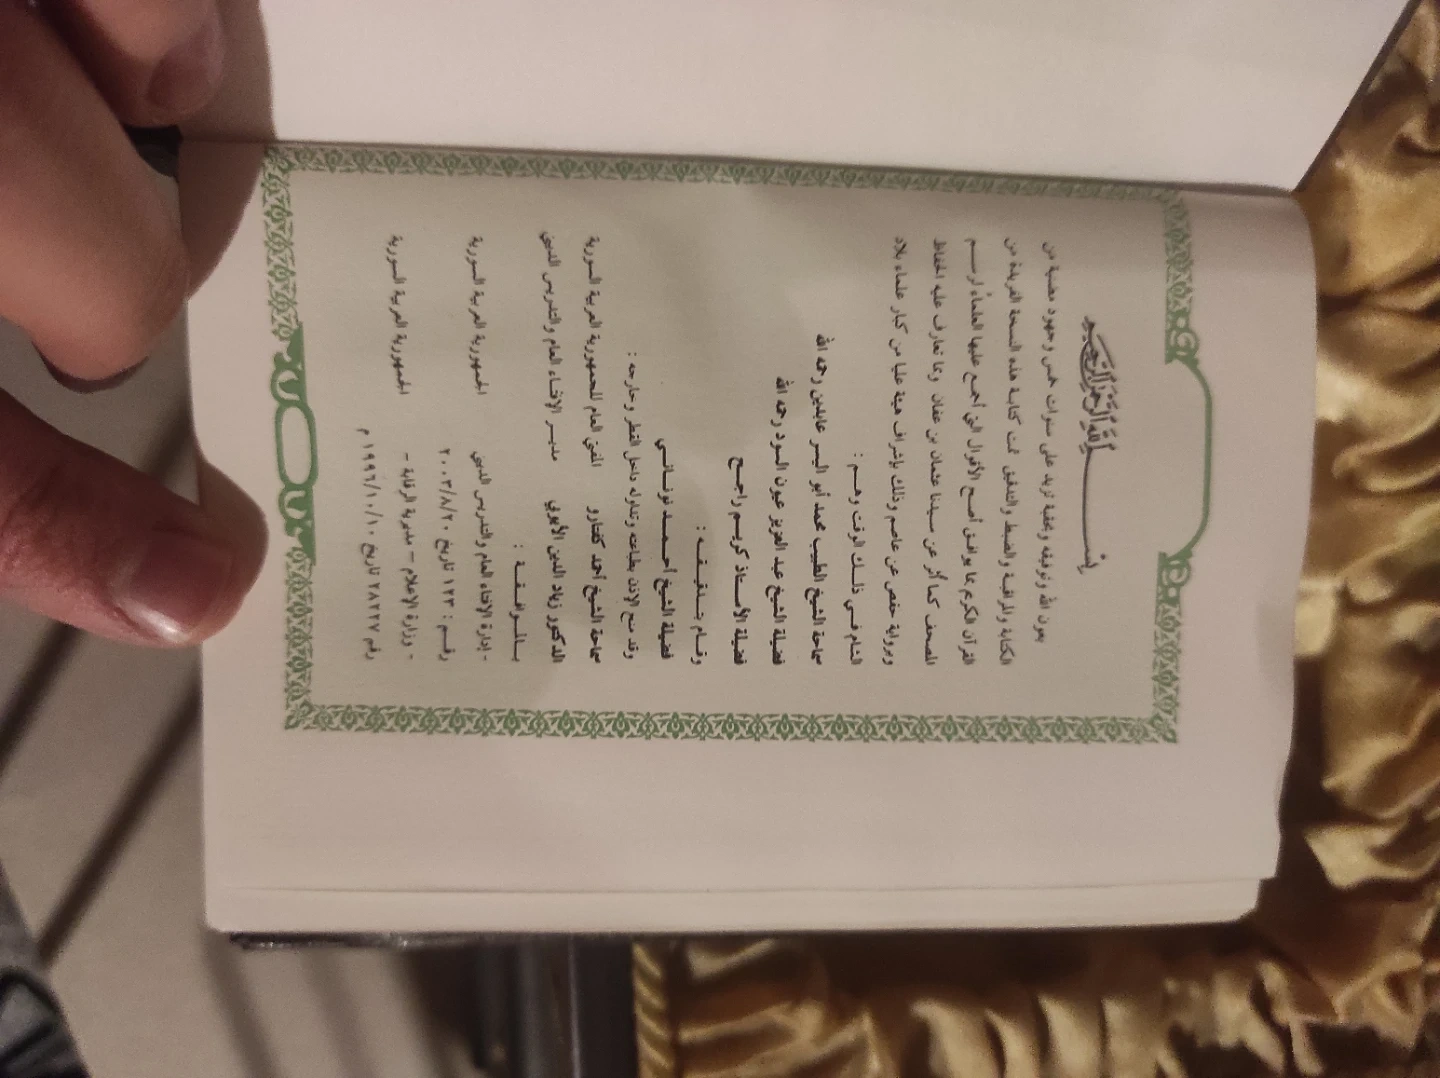 بِسْمِ اللَّهِ الرَّحْمَنِ الرَّحِيمِ
بعون الله وتوفيقه وبحقبة تزيد على سنوات خمس وجهود مضنية من
الكتابة والمراقبة والضبط والتدقيق تمت كتابة هذه النسخة الفريدة من
القرآن الكريم بما يوافق أصح الأقوال التي أجمع عليها العلماء لرسم
المصحف كما أثر عن سيدنا عثمان بن عفان وبما تعارف عليه الحفاظ
وبرواية حفص عن عاصم وذلك بإشراف هيئة عليا من كبار علماء بلاد
الشام في ذلك الوقت وهم :
سماحة الشيخ الطبيب محمد أبو اليسر عابدين رحمه الله
فضيلة الشيخ عبد العزيز عيون السود رحمه الله
فضيلة الأستاذ كريم راجح
وقام بتدقيقه :
فضيلة الشيخ أحمد نونانسي
وقد منح الإذن بطباعته وتداوله داخل القطر وخارجه :
سماحة الشيخ أحمد كفتارو المفتي العام للجمهورية العربية السورية
الدكتور زياد الدين الأيوبي مدير الإفتاء العام والتدريس الديني
بالموافقة :
- إدارة الإفتاء العام والتدريس الديني الجمهورية العربية السورية
رقم : ١٢٣ تاريخ ٢٠٠٣/٨/٢٠
- وزارة الإعلام – مديرية الرقابة – الجمهورية العربية السورية
رقم ٢٨٢٣٧ تاريخ ١٩٩٦/١٠/١٠ م